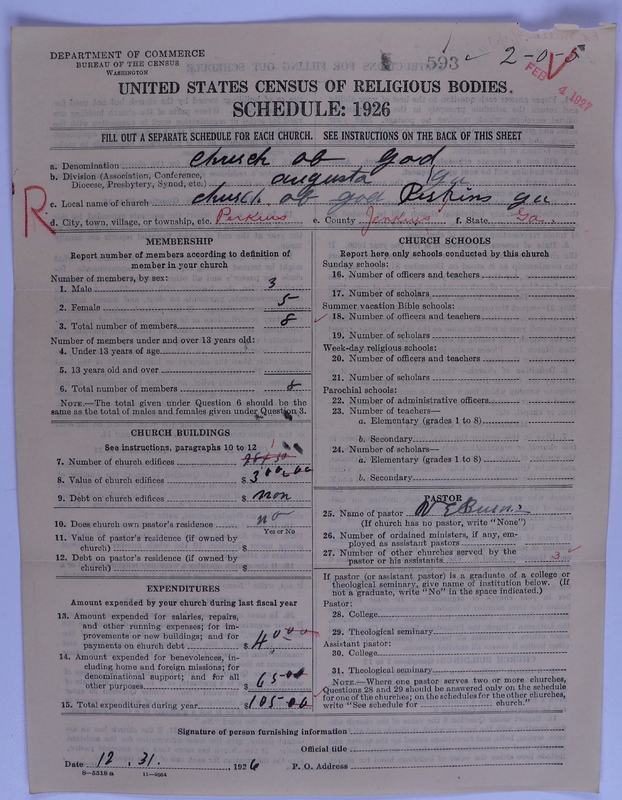 DEPARTMENT OF COMMERCE
BUREAU OF THE CENSUS
WASHINGTON
593
2-0-5
FEB 4 1927
UNITED STATES CENSUS OF RELIGIOUS BODIES
SCHEDULE: 1926
FILL OUT A SEPARATE SCHEDULE FOR EACH CHURCH. SEE INSTRUCTIONS ON THE BACK OF THIS SHEET
a. Denomination church of god
b. Division (Association, Conference, Diocese, Presbytery, Synod, etc.) augusta Ga
c. Local name of church church of god Perkins ga
R
d. City, town, village, or township, etc. Perkins e. County Jenkins f. State Ga.
MEMBERSHIP
Report number of members according to definition of
member in your church
Number of members, by sex:
1. Male 3
2. Female 5
3. Total number of members 8
Number of members under and over 13 years old:
4. Under 13 years of age
5. 13 years old and over
6. Total number of members 8
NOTE.—The total given under Question 6 should be the
same as the total of males and females given under Question 3.
CHURCH BUILDINGS
See instructions, paragraphs 10 to 12
7. Number of church edifices 1
8. Value of church edifices $ 300.00
9. Debt on church edifices $ non
10. Does church own pastor's residence no
Yes or No
11. Value of pastor's residence (if owned by
church) $
12. Debt on pastor's residence (if owned by
church) $
EXPENDITURES
Amount expended by your church during last fiscal year
13. Amount expended for salaries, repairs,
and other running expenses; for im-
provements or new buildings; and for
payments on church debt $ 40 00
14. Amount expended for benevolences, in-
cluding home and foreign missions; for
denominational support; and for all
other purposes $ 65 00
15. Total expenditures during year $ 105 00
CHURCH SCHOOLS
Report here only schools conducted by this church
Sunday schools:
16. Number of officers and teachers
17. Number of scholars
Summer vacation Bible schools:
18. Number of officers and teachers
19. Number of scholars
Week-day religious schools:
20. Number of officers and teachers
21. Number of scholars
Parochial schools:
22. Number of administrative officers
23. Number of teachers—
a. Elementary (grades 1 to 8)
b. Secondary
24. Number of scholars—
a. Elementary (grades 1 to 8)
b. Secondary
PASTOR
25. Name of pastor
(If church has no pastor, write "None")
26. Number of ordained ministers, if any, em-
ployed as assistant pastors
27. Number of other churches served by the
pastor or his assistants 3
If pastor (or assistant pastor) is a graduate of a college or
theological seminary, give name of institution below. (If
not a graduate, write "No" in the space indicated.)
Pastor:
28. College
29. Theological seminary
Assistant pastor:
30. College
31. Theological seminary
NOTE.—Where one pastor serves two or more churches,
Questions 28 and 29 should be answered only on the schedule
for one of the churches; on the schedules for the other churches,
write "See schedule for church."
Signature of person furnishing information
Official title
Date 12. 31. 1926 P. O. Address
8-5318a 11-9664